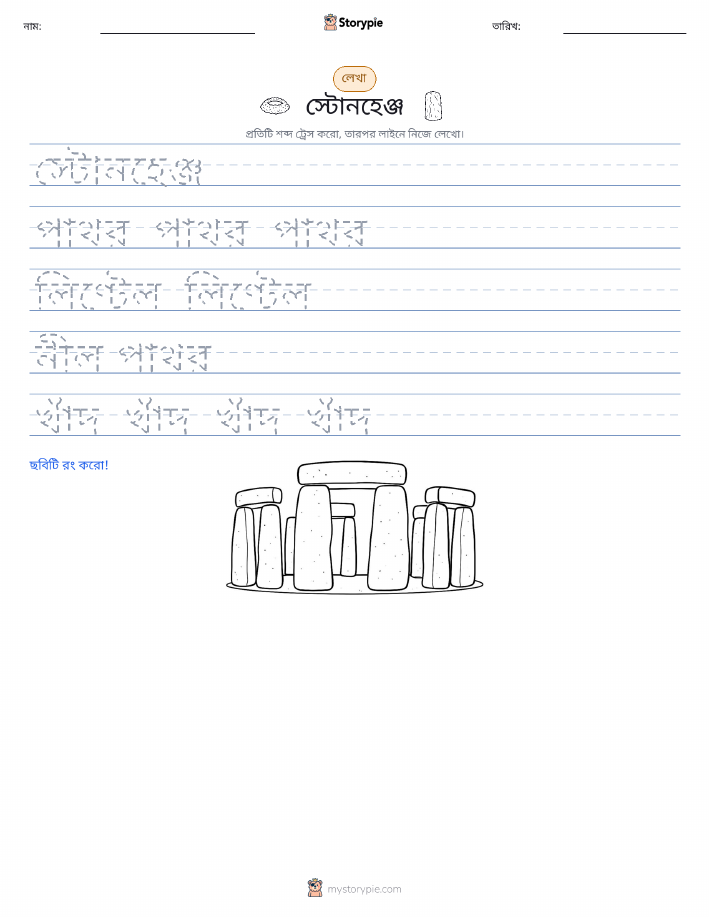 নাম:
Storypie
তারিখ:
লেখা
স্টোনহেঞ্জ
প্রতিটি শব্দ ট্রেস করো, তারপর লাইনে নিজে লেখো।
স্টোনহেঞ্জ
পাথর পাথর পাথর
লিণ্টেল লিণ্টেল
নীল পাথর
খাঁদ খাঁদ খাঁদ খাঁদ
ছবিটি রং করো!
mystorypie.com